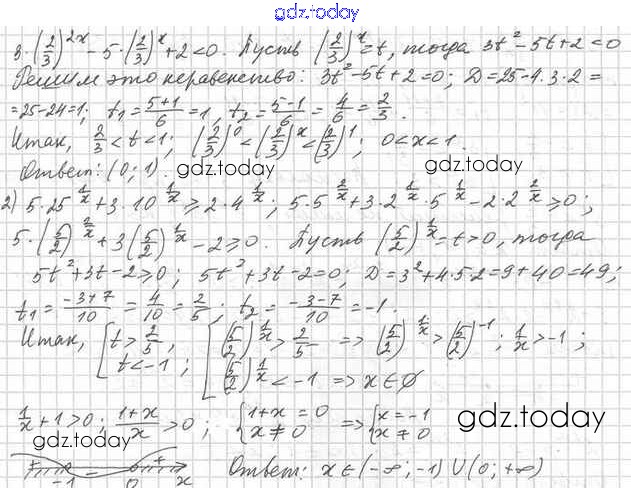 gdz.today
3·(2/3)^(2x) − 5·(2/3)^x + 2 < 0. Пусть (2/3)^x = t, тогда 3t² − 5t + 2 < 0
Решим это неравенство: 3t² − 5t + 2 = 0; D = 25 − 4·3·2 =
= 25 − 24 = 1; t₁ = (5+1)/6 = 1, t₂ = (5−1)/6 = 4/6 = 2/3.
Итак, 2/3 < t < 1; (2/3)^0 < (2/3)^x < (2/3)^1; 0 < x < 1.
Ответ: (0; 1).
gdz.today
gdz.today
2) 5·25^(1/x) + 3·10^(1/x) ≥ 2·4^(1/x); 5·5^(2/x) + 3·2^(1/x)·5^(1/x) − 2·2^(2/x) ≥ 0;
5·(5/2)^(2/x) + 3(5/2)^(1/x) − 2 ≥ 0. Пусть (5/2)^(1/x) = t > 0, тогда
5t² + 3t − 2 ≥ 0; 5t² + 3t − 2 = 0; D = 3² + 4·5·2 = 9 + 40 = 49;
t₁ = (−3+7)/10 = 4/10 = 2/5; t₂ = (−3−7)/10 = −1.
Итак, [t > 2/5, t < −1; [(5/2)^(1/x) > 2/5 => (5/2)^(1/x) > (5/2)^(−1); 1/x > −1;
(5/2)^(1/x) < −1 => x ∈ ∅
1/x + 1 > 0; (1+x)/x > 0; {1+x = 0, x ≠ 0 => {x = −1, x ≠ 0
gdz.today
gdz.today
+ − + −1 0 x
Ответ: x ∈ (−∞; −1) ∪ (0; +∞)